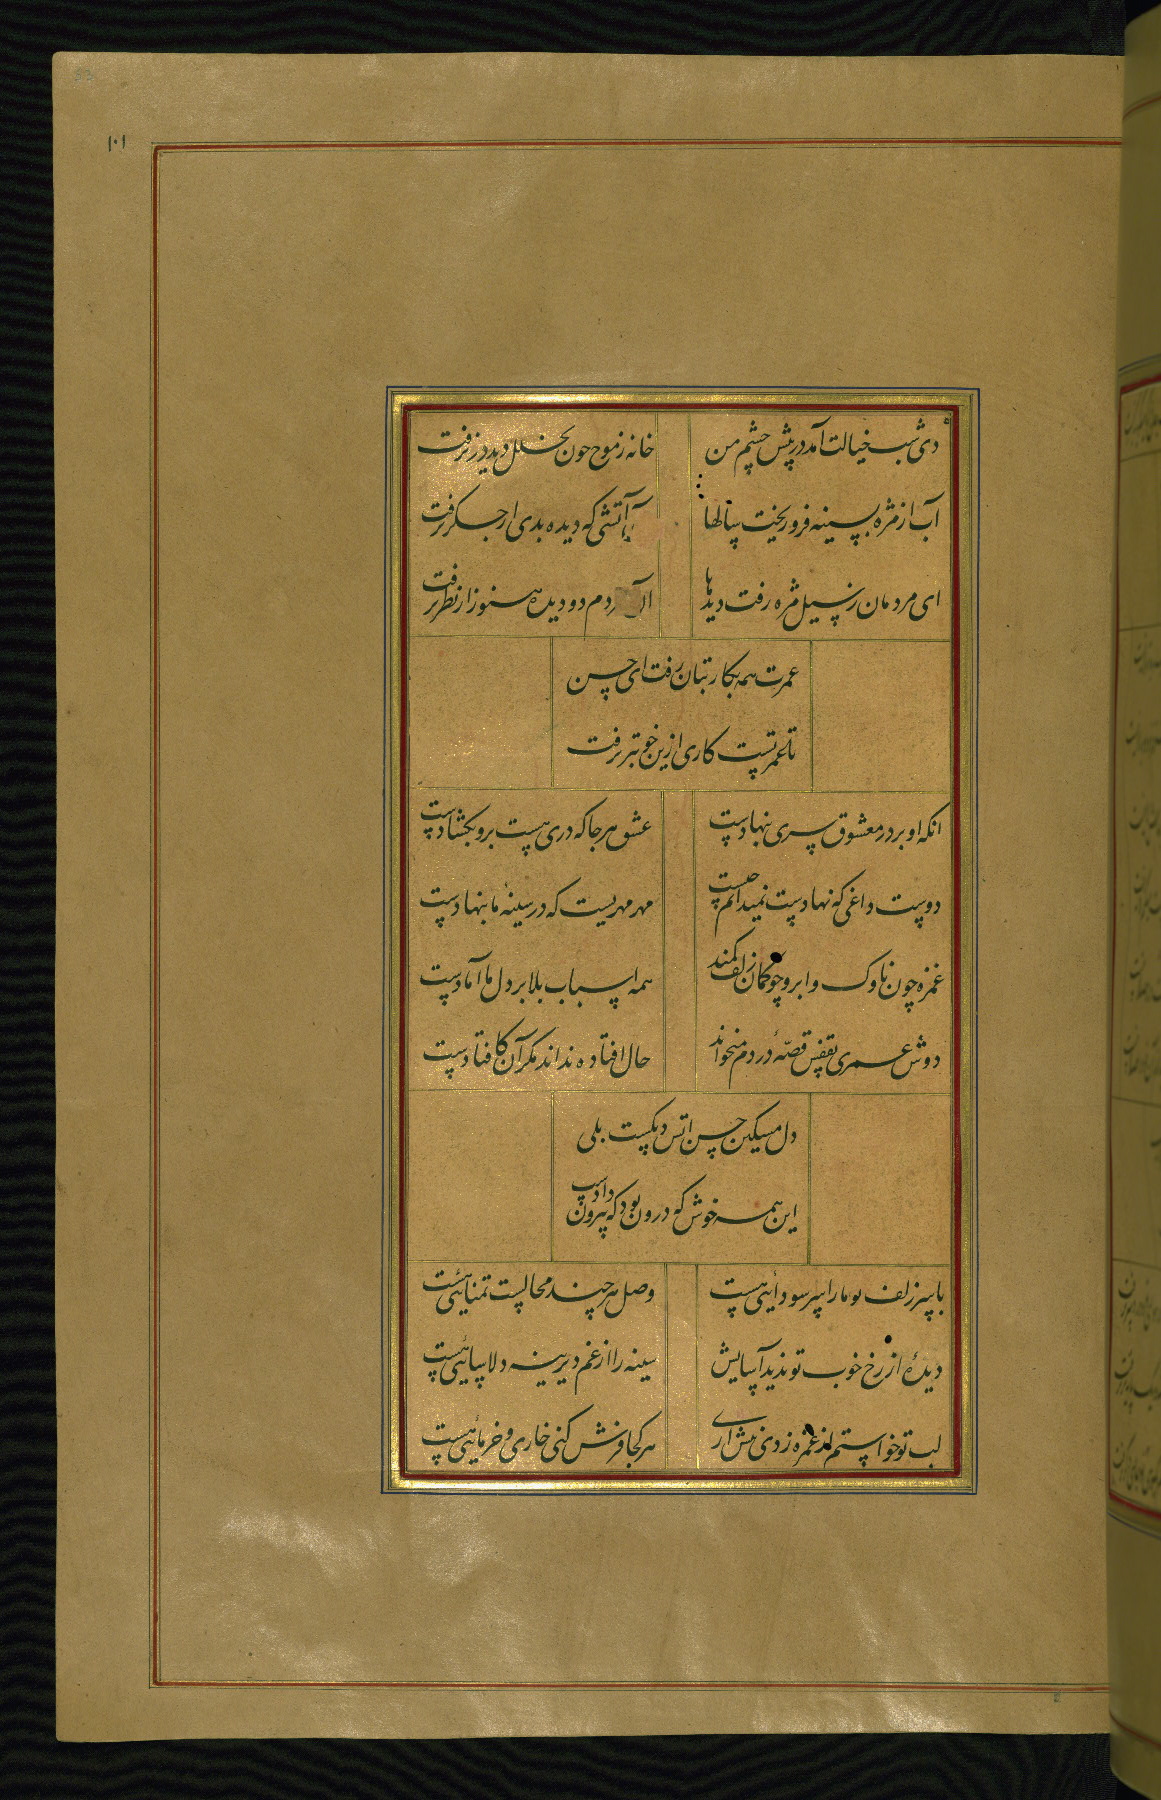 ۱۰۱
دی شب خیالت آمد در پیش چشم من
خانه ز موج خون بخلل دید درنرفت
آب از مژه بسینه فرو ریخت سالها
آتشی که دیده بدی از جگر نرفت
ای مردمان ز سیل مژه رفت دیدها
مردم دو دیده هنوز از نظر نرفت
عمرت همه بکار بتان رفت ای حسن
تا عمر تست کاری ازین خوبتر نرفت
انکه او بر در معشوق سری بنهادست
عشق هر جا که دری هست برو بکشادست
دوست داغی که نهادست نمیدانم چیست
مهر مهریست که در سینهٔ ما بنهادست
غمزه چون ناوک و ابرو چو کمان زلف کمند
همه اسباب بلا بر دل ما آمادست
دوش عمری بقفس قصهٔ دردم میخواند
حال افتاده نداند مکر آن کافتادست
دل مسکین حسن اتش دیکست بلی
این همه خوش که درون بود که بیرون دادست
با سر زلف تو ما را سر سودائی هست
وصل هر چند محالست تمنائی هست
دیدهٔ از رخ خوب تو ندید آسایش
سینه را از غم دیرینه دلاسائی هست
لب تو خواستم از غمزه زدی نیش اری
هر کجا فرش کنی خاری و خرمائی هست